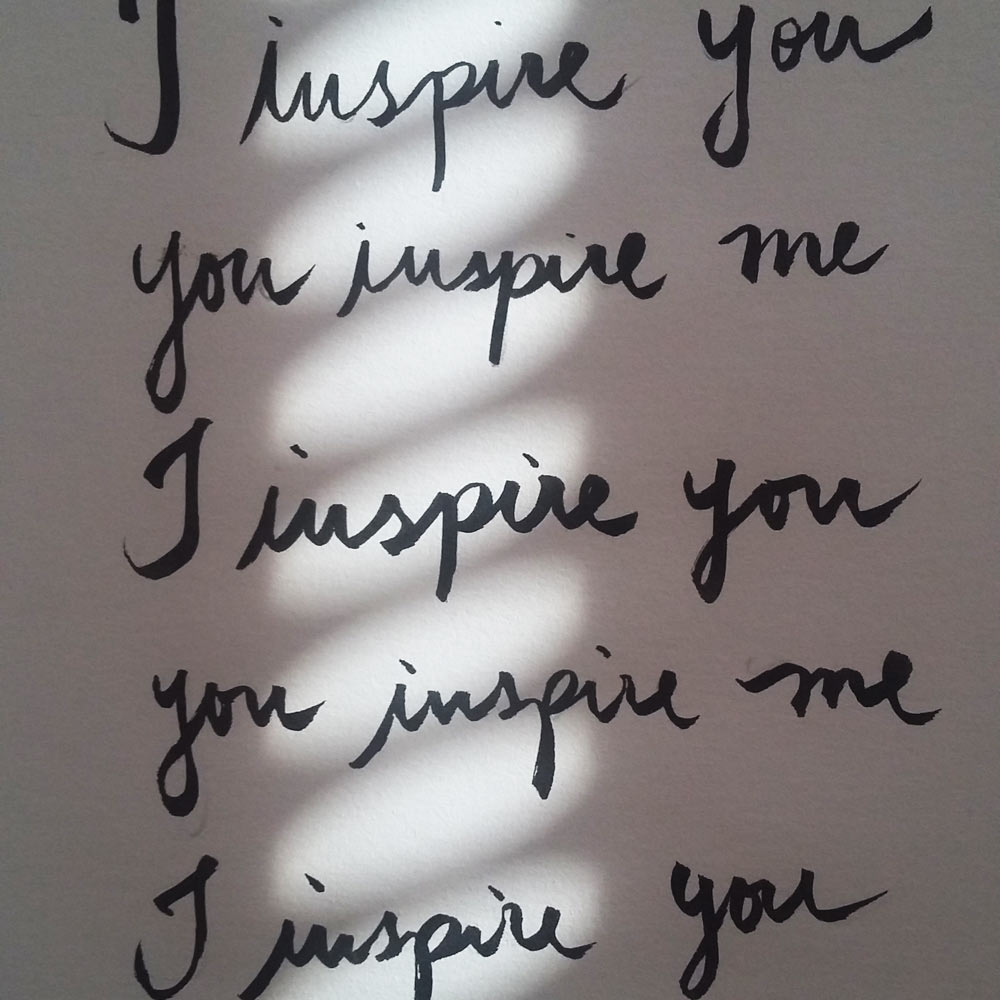 I inspire you
you inspire me
I inspire you
you inspire me
I inspire you